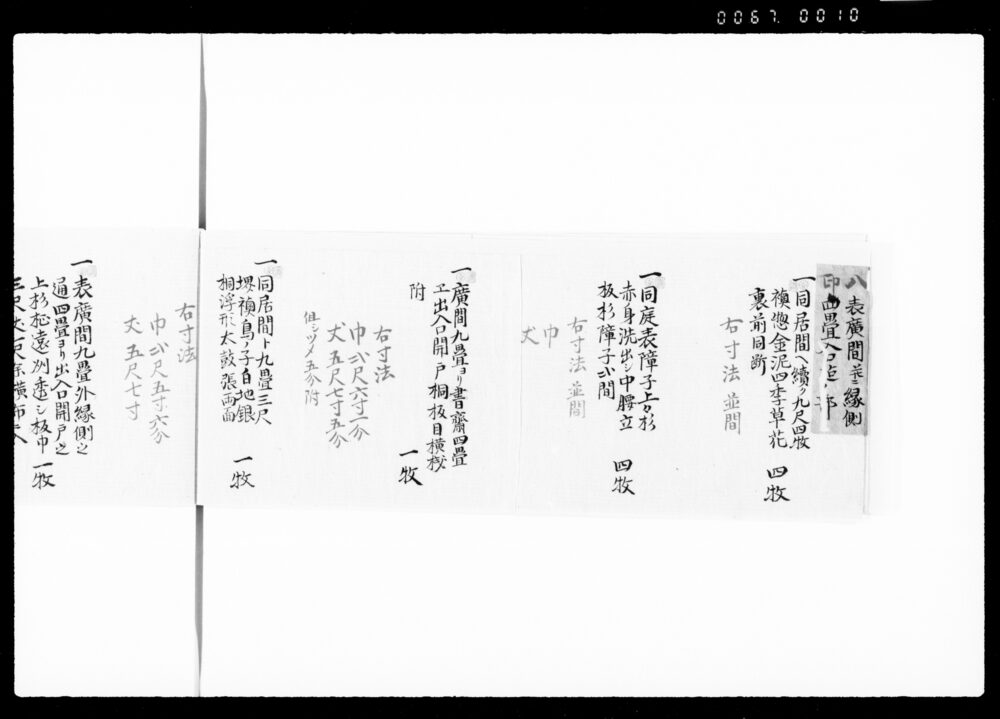 0067. 0010
八 表廣間並ニ縁側
印 四畳入口
一 同居間ヘ續ク九尺四牧
襖惣金泥四季草花
裏前同断 四牧
右寸法並間
一 同庭表障子上ヶ杉
赤身洗出シ中腰立
板杉障子弐間 四牧
右寸法並間
巾
丈
一 廣間九畳ヨリ書齋四畳
ヱ出入口開戸桐板目横桟
附 一牧
右寸法
巾弐尺六寸二分
丈五尺七寸五分
但シツメ五分附
一 同居間ト九畳三尺
堺襖鳥ノ子白地銀
桐浮形太鼓張両面 一牧
右寸法
巾弐尺五寸六分
丈五尺七寸
一 表廣間九畳外縁側之
通四畳ヨリ出入口開戸之
上杉柾遠別透シ板巾 一牧